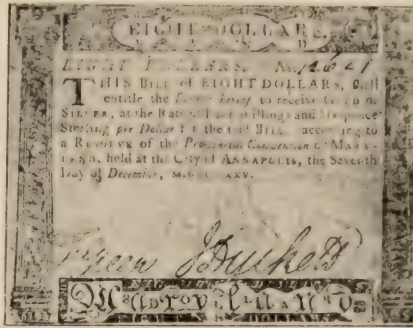 EIGHT DOLLARS.
EIGHT DOLLARS. No.
THIS Bill of EIGHT DOLLARS, shall
entitle the Bearer hereof to receive GOLD or
SILVER, at the Rate of Four Shillings and Six-pence
Sterling per Dollar for the said BILL, according to
a RESOLVE of the Provincial Convention of MARY-
LAND, held at the City of ANNAPOLIS, the Seventh
Day of December, M.DCC.LXXV.
Green J Duckett
DOLLARS